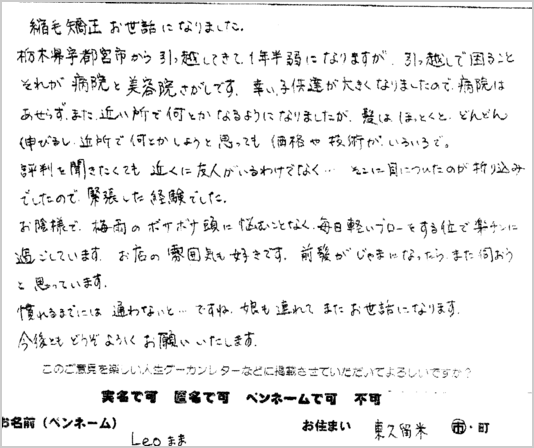 縮毛矯正 お世話になりました。
栃木県宇都宮市から引っ越してきて、1年半弱になりますが、引っ越しで困ること
それが病院と美容院さがしです。幸い、子供達が大きくなりましたので、病院は
あせらず、また、近い所で何とかなるようになりましたが、髪はほっとくと、どんどん
伸びるし、近所で何とかしようと思っても価格や技術がいろいろで。
評判を聞きたくても近くに友人がいるわけでなく… そこに目についたのが折り込み
でしたので、緊張した経験でした。
お陰様で、梅雨のボサボサ頭に悩むことなく、毎日軽いブローをする位で楽チンに
過ごしています。お店の雰囲気も好きです。前髪がじゃまになったら、また伺おう
と思っています。
慣れるまでには通わないと…ですね。娘も連れてまたお世話になります。
今後ともどうぞよろしくお願いいたします。
このご意見を楽しい人生ゲーカンレターなどに掲載させていただいてよろしいですか？
実名で可 匿名で可 ペンネームで可 不可
お名前（ペンネーム） お住まい 東久留米 市・町
Leoまま